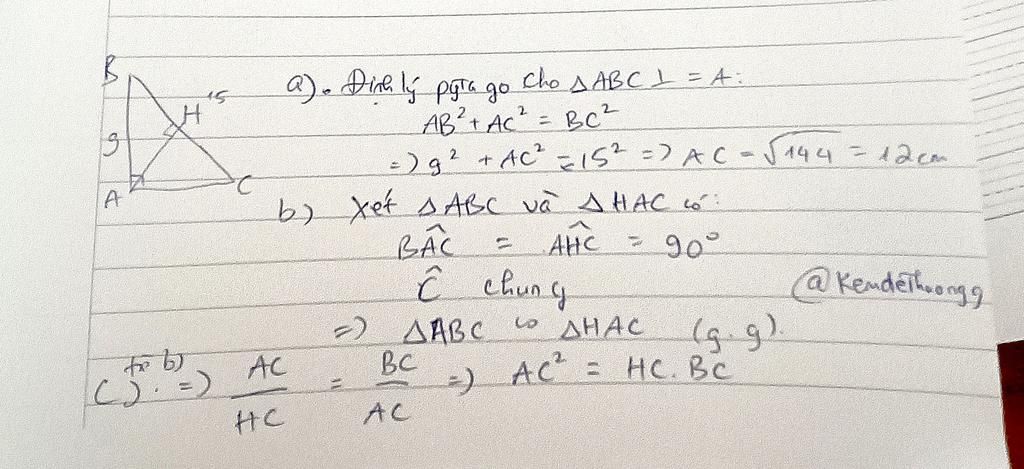 B
H
15
9
A
C
a). Định lý pytago cho △ABC ⊥ = A:
AB² + AC² = BC²
=> 9² + AC² = 15² => AC = √144 = 12cm
b) Xét △ABC và △HAC có:
BÂC = AĤC = 90°
Ĉ chung
@Kemdethuongg
=> △ABC ∽ △HAC (g.g).
c) từ b) => AC/HC = BC/AC => AC² = HC.BC